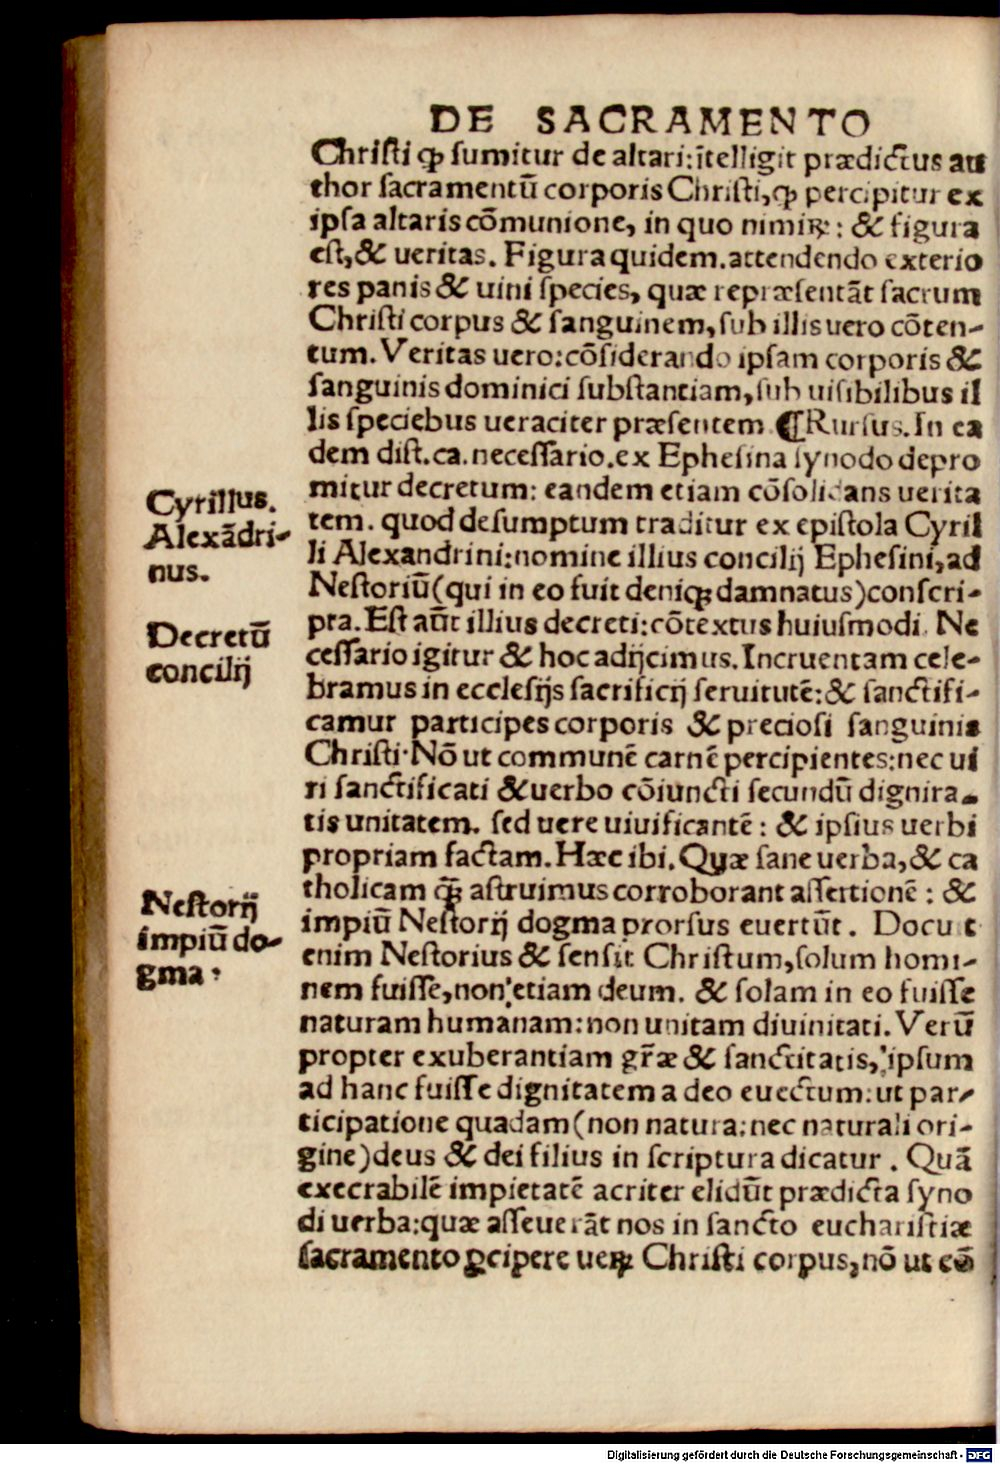 DE SACRAMENTO
Christi ꝙ sumitur de altari:ītelligit prædictus au
thor sacramentū corporis Christi,ꝙ percipitur ex
ipsa altaris cōmunione, in quo nimiꝝ: & figura
est,& ueritas. Figura quidem.attendendo exterio
res panis & uini species, quæ repræsentāt sacrum
Christi corpus & sanguinem,sub illis uero cōten-
tum. Veritas uero:cōsiderando ipsam corporis &
sanguinis dominici substantiam,sub uisibilibus il
lis speciebus ueraciter præsentem ¶Rursus. In ea
dem dist.ca.necessario.ex Ephesina synodo depro
mitur decretum: eandem etiam cōsolidans uerita
tem. quod desumptum traditur ex epistola Cyril
li Alexandrini:nomine illius concilij Ephesini,ad
Nestoriū(qui in eo fuit deniqꝫ damnatus)conscri-
pta. Est aūt illius decreti:cōtextus huiusmodi. Ne
cessario igitur & hoc adijcimus. Incruentam cele-
bramus in ecclesijs sacrificij seruitutē:& sanctifi-
camur participes corporis & preciosi sanguinis
Christi. Nō ut communē carnē percipientes:nec ui
ri sanctificati & uerbo cōiuncti secundū dignita-
tis unitatem. sed uere uiuificantē: & ipsius uerbi
propriam factam. Hæc ibi. Quæ sane uerba,& ca
tholicam qꝫ̄ astruimus corroborant assertionē: &
impiū Nestorij dogma prorsus euertūt. Docuit
enim Nestorius & sensit Christum,solum homi-
nem fuisse,non etiam deum. & solam in eo fuisse
naturam humanam:non unitam diuinitati. Verū
propter exuberantiam gr̄æ & sanctitatis, ipsum
ad hanc fuisse dignitatem a deo euectum:ut par-
ticipatione quadam(non natura:nec naturali ori-
gine)deus & dei filius in scriptura dicatur. Quā
execrabilē impietatē acriter elidūt prædicta syno
di uerba:quæ asseuerāt nos in sancto eucharistiæ
sacramento ꝑcipere ueꝝ Christi corpus,nō ut cō
Cyrillus.
Alexādri-
nus.
Decretū
concilij
Nestorij
impiū do-
gma.
Digitalisierung gefördert durch die Deutsche Forschungsgemeinschaft - DFG